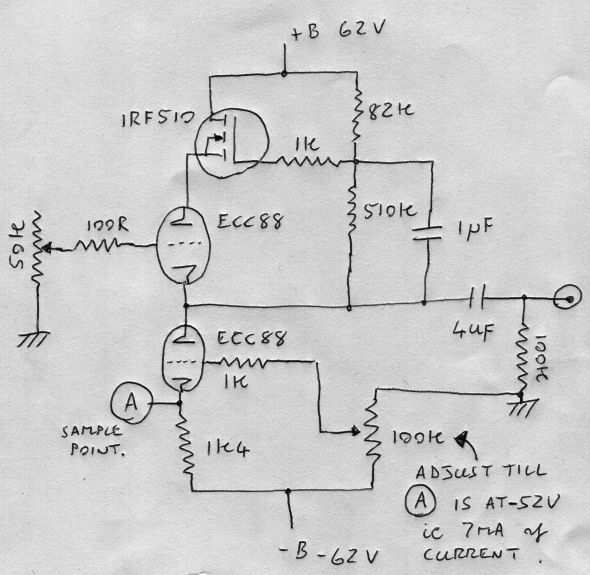 +B 62V
IRF510
82K
1K
ECC88
510K
1µF
50K
100R
ECC88
1K
4uF
100K
A
SAMPLE
POINT.
1K4
100K
ADJUST TILL
A IS AT -52V
ie 7MA of
CURRENT.
-B -62V